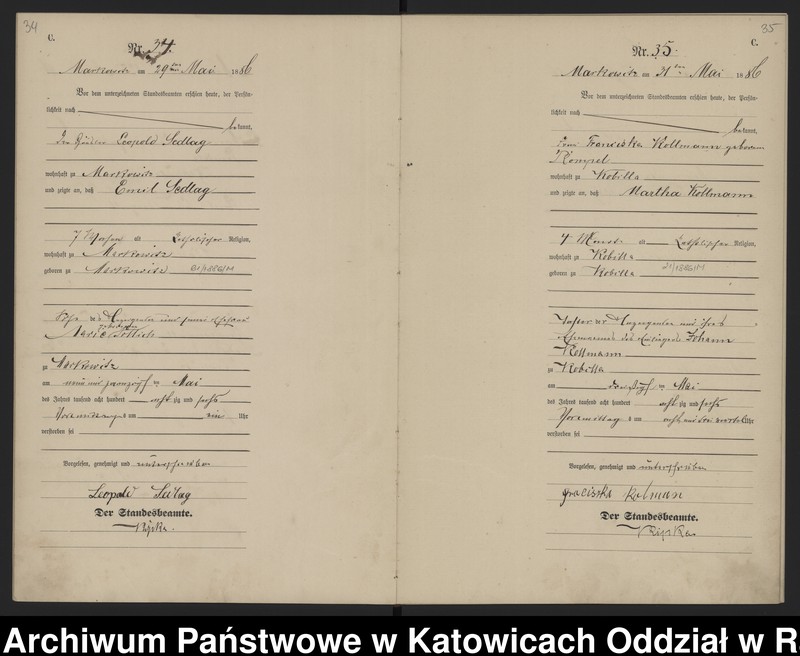 34
C.
Nr. 34.
Markowitz am 29ten Mai 1886
Vor dem unterzeichneten Standesbeamten erschien heute, der Persön-
lichkeit nach
bekannt,
Leopold Sedlag
wohnhaft zu Markowitz
und zeigte an, daß Emil Sedlag
7 Wochen alt katholischer Religion,
wohnhaft zu Markowitz
geboren zu Markowitz
Sohn des und seiner Ehefrau
Marie geborenen
zu Markowitz
am neun und zwanzigsten Mai
des Jahres tausend acht hundert achtzig und sechs
Vormittags um ein Uhr
verstorben sei
Vorgelesen, genehmigt und unterschrieben
Leopold Sedlag
Der Standesbeamte.
35
C.
Nr. 35.
Markowitz am 31ten Mai 1886
Vor dem unterzeichneten Standesbeamten erschien heute, der Persön-
lichkeit nach
bekannt,
Frau Franciska Kollmann geborene
wohnhaft zu Kobilla
und zeigte an, daß Martha Kollmann
4 Monat alt katholischer Religion,
wohnhaft zu Kobilla
geboren zu Kobilla
Tochter der und ihres
Ehemannes des Johann
Kollmann
zu Kobilla
am dreißigsten Mai
des Jahres tausend acht hundert achtzig und sechs
Vormittags um acht und drei viertel Uhr
verstorben sei
Vorgelesen, genehmigt und unterschrieben
Der Standesbeamte.
Archiwum Państwowe w Katowicach Oddział w R